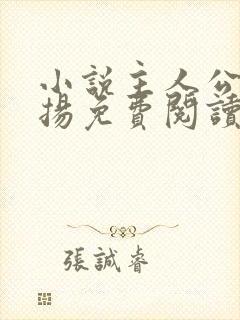 小說主人公
揚免費閱讀
張誠睿